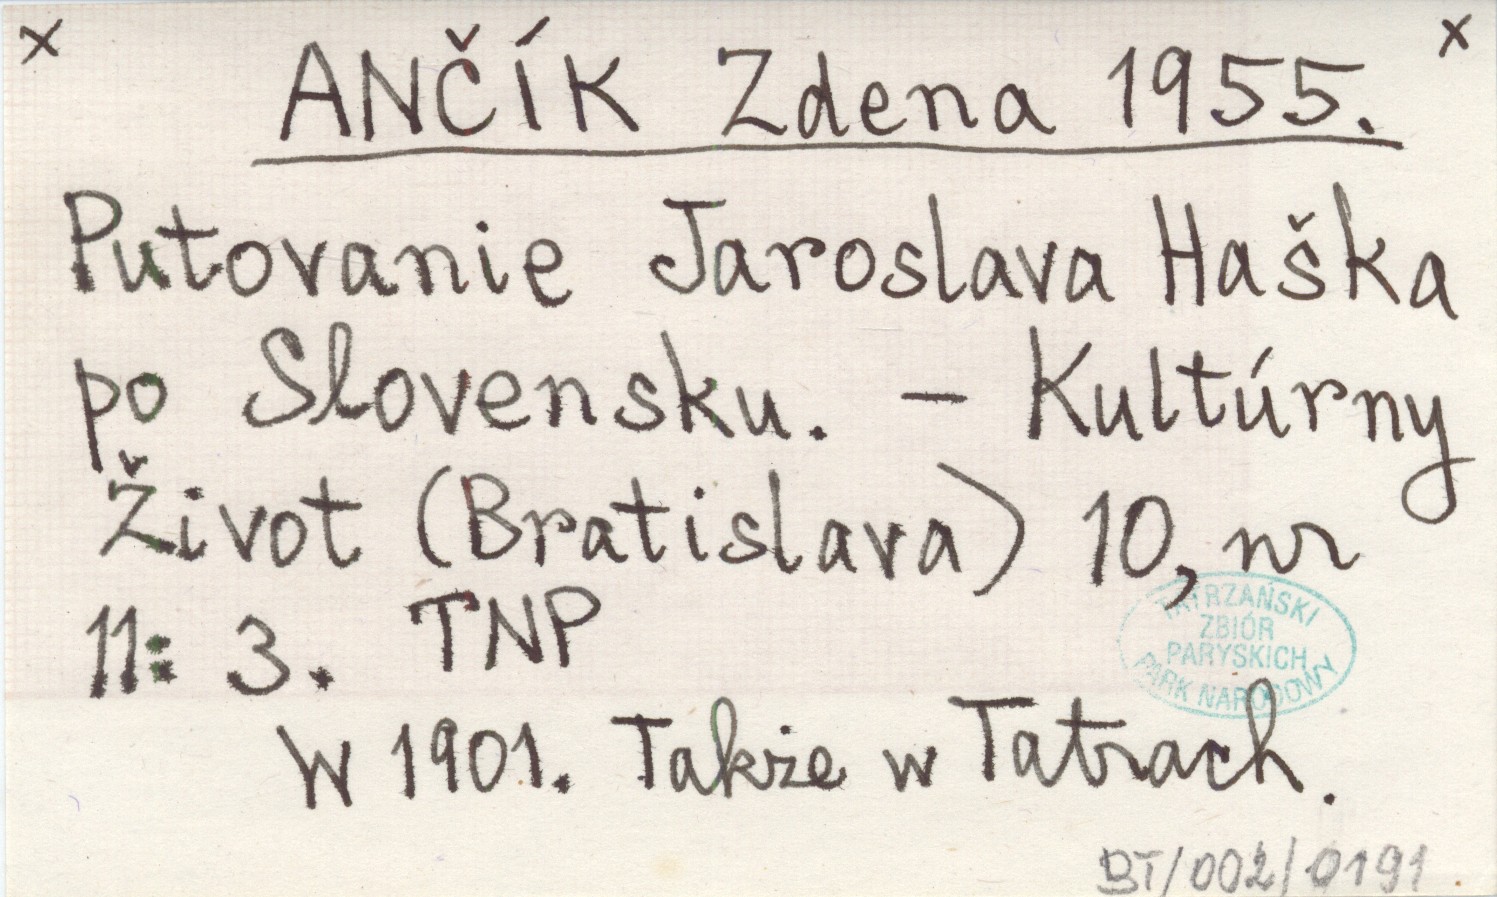 x x
ANČÍK Zdena 1955.
Putovanie Jaroslava Haška
po Slovensku. - Kultúrny
Život (Bratislava) 10, nr
11: 3. TNP
TATRZAŃSKI
ZBIÓR
PARYSKICH
PARK NARODOWY
W 1901. Także w Tatrach.
BT/002/0191